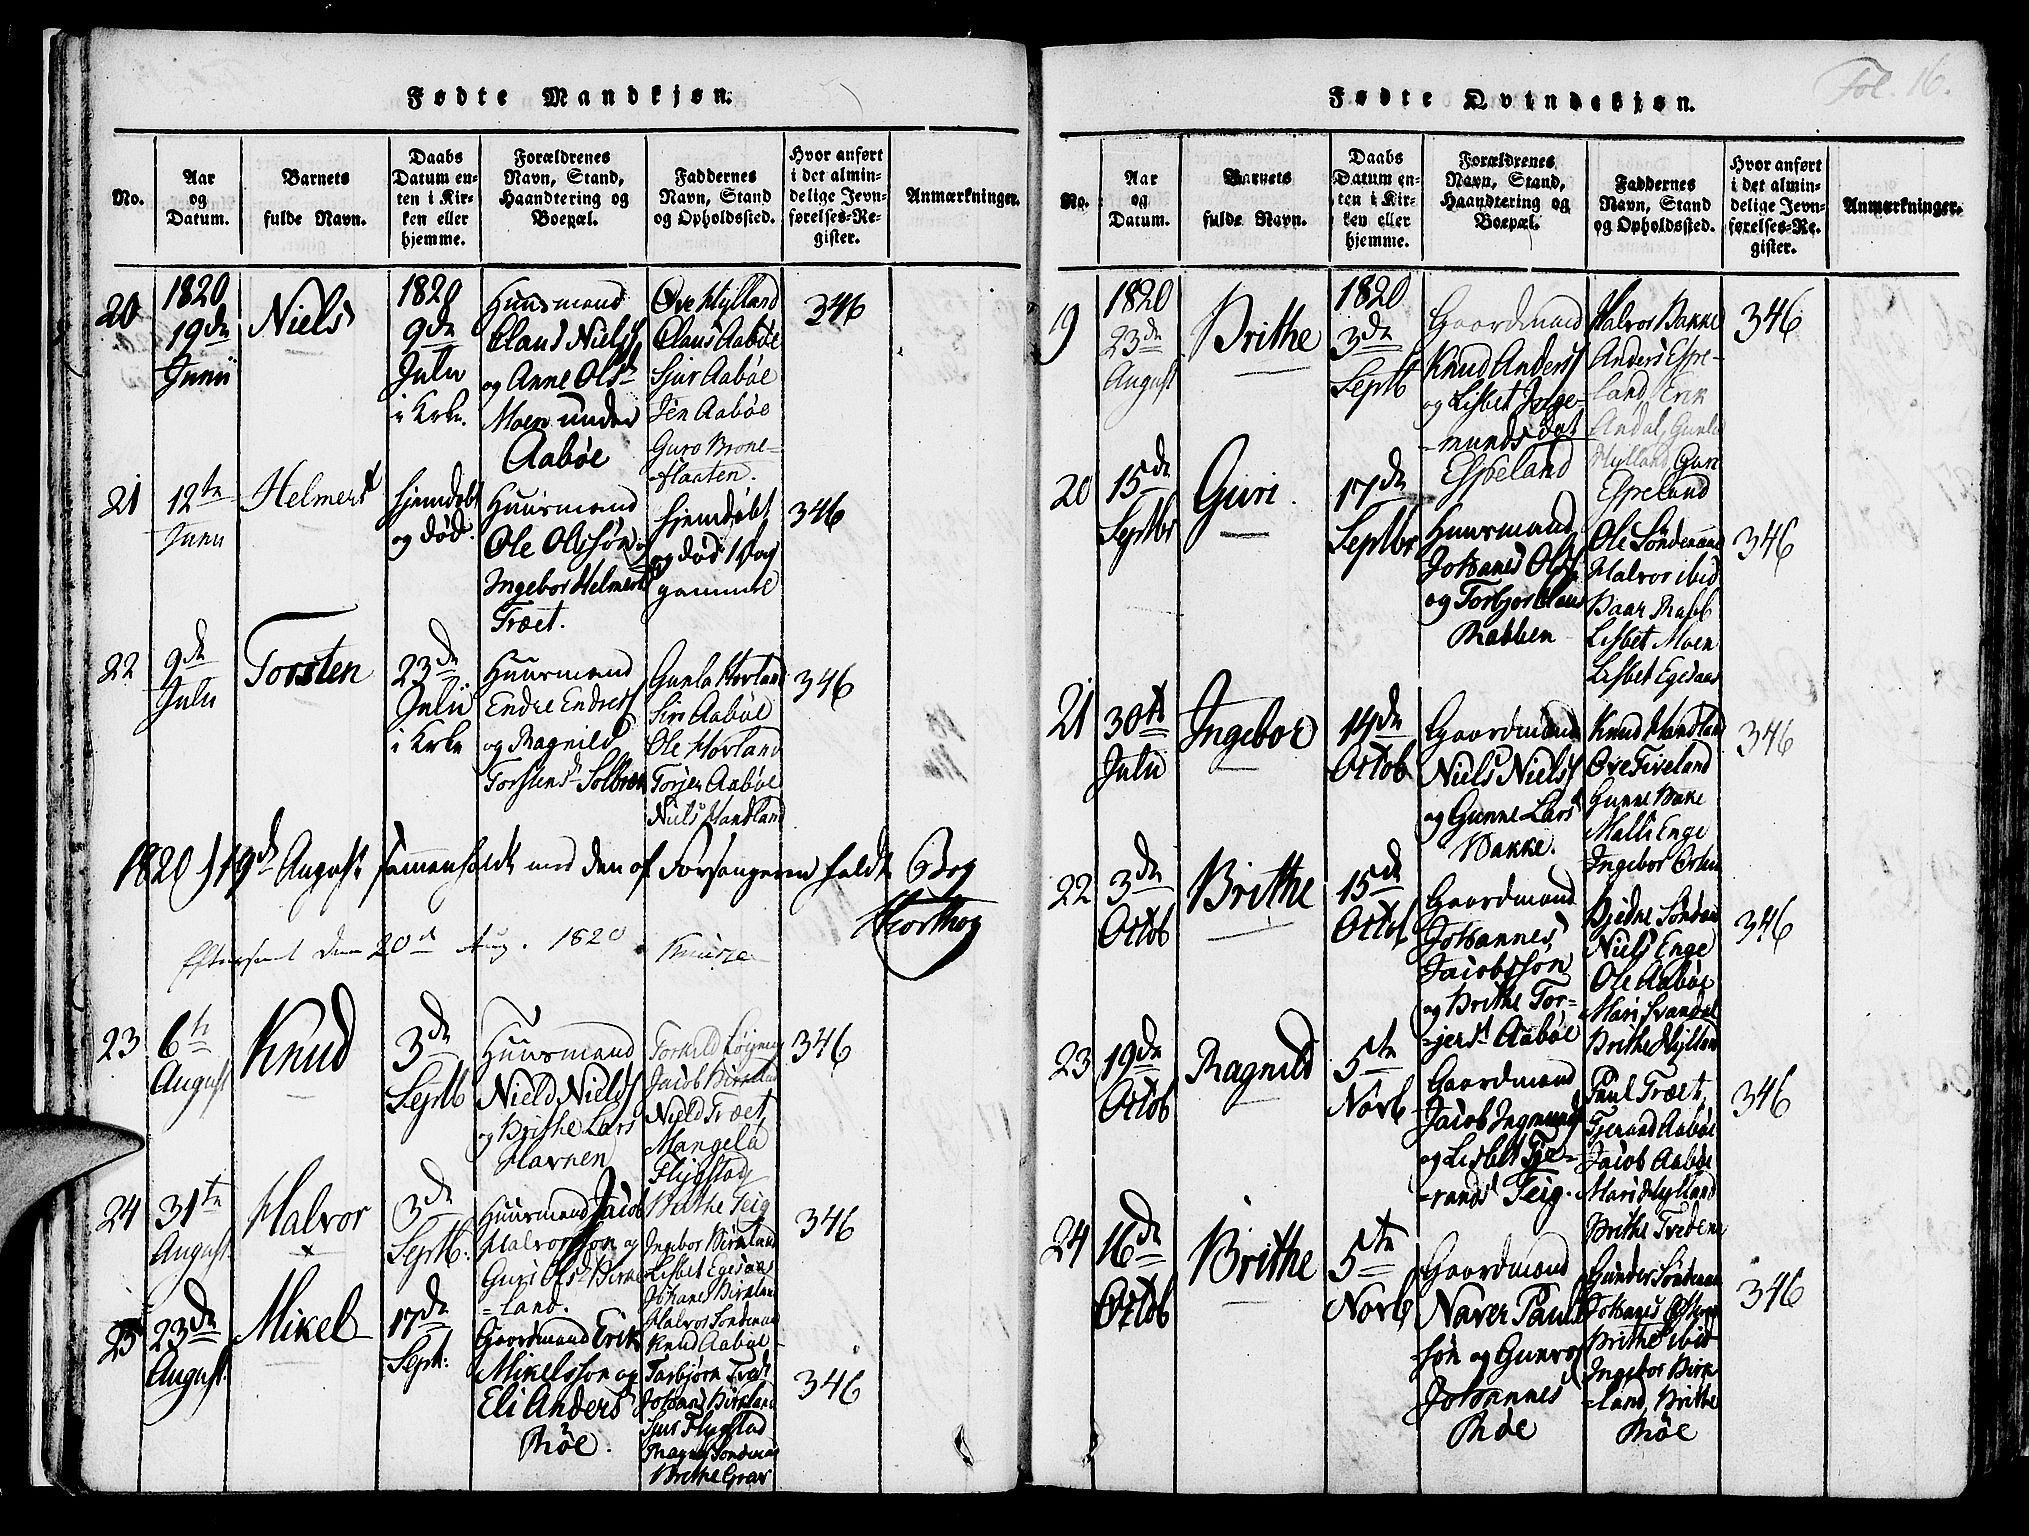 Fødte Mandkjøn.
No.
Aar
og
Datum.
Barnets
fulde Navn.
Daabs
Datum en-
ten i Kir-
ken eller
hjemme.
Forældrenes
Navn, Stand,
Haandtering og
Boepæl.
Faddernes
Navn, Stand
og Opholdssted.
Hvor anført
i det almin-
delige Jevn-
førelses-Re-
gister.
Anmærkninger.
20
1820
19de
Junii
Niels
1820
9de
Julii
i Krkn.
Huusmand
Claus Niels
og Anne Olsd
Moen under
Aabøe
Ove Hylland
Claus Aabøe
Sjur Aabøe
Jen Aabøe
Guro Brone-
flaaten.
346
21
12te
Junii
Helmert
hjemdøbt
og død.
Huusmand
Ole Olssøn og
Ingebor Helmert
Træet.
hjemdøbt
og død 1 Dag
gammel
346
22
9de
Julii
Torsten
23de
Julii
i Krkn
Huusmand
Endre Endres
og Ragnild
Torstensd Solbræk
Gunla Horland
Siri Aabøe
Ole Horland
Torjer Aabøe
Niels Handland
346
1820 d 19de August sammenholdt med den af Forsangeren holdt Bog
Horthog
Efterseet den 20de Aug. 1820
23
6te
August
Knud
3de
Septb
Huusmand
Niels Niels
og Brithe Lars
Havnen
Torkild Løgning
Jacob Birkeland
Niels Træet
Mangela
Flygstad
Brithe Teig
346
24
31te
August
Halvor
3de
Septb:
Huusmand Jacob
Halvorsson og
Guri Olsd Birke-
=land.
Ingebor Birkland
Lisbet Egesaas
Johanes Birkland
Halvor Søndenaa
Knud Aabøe
346
25
23de
August
Mikel
17de
Sept:
Gaardmand Erik
Mikelsson og
Eli Anders
Røe.
Torbjørn Tvedt
Johanes Birkland
Sjur Flygstad
Ragnild Søndenaa
Brithe Grav
346
Fol. 16.
Fødte Qvindekjøn.
No.
Aar
og
Datum.
Barnets
fulde Navn.
Daabs
Datum en-
ten i Kir-
ken eller
hjemme.
Forældrenes
Navn, Stand,
Haandtering og
Boepæl.
Faddernes
Navn, Stand
og Opholdssted.
Hvor anført
i det almin-
delige Jevn-
førelses-Re-
gister.
Anmærkninger.
19
1820
23de
August
Brithe
1820
3de
Septb
Gaardmand
Knud Anders
og Lisbet Jørge-
-mundsdat
Espeland
Halvor Bakke
Anders Espe-
land, Erik
Andal, Gunla
Hylland Guri
Espeland
346
20
15de
Septbr
Guri.
17de
Septbr
Huusmand
Johanes Ols
og Torbjor Claus
Rabben
Ole Søndenaa
Halvor ibid
Baar Rabb
Lisbet Moen
Lisbet Egesaas
346
21
30te
Julii
Ingebor
14de
Octob
Gaardmand
Niels Niels
og Gunne Lars
Bakke.
Knud Handland
Ove Fiveland
Gunne Bake
Malli Enge
Ingebor Orhn
346
22
3de
Octob
Brithe
15de
Octob
Gaardmand
Johannes
Jacobsson
og Brithe Tor-
-jersd Aabøe
Bjedne Søndenaa
Niels Enge
Ole Aabøe
Mari Svandal
Brithe Hylland
346
23
19de
Octob
Ragnild
5te
Novb
Gaardmand
Jacob Ingmund
og Lisbet Tje-
-rands Teig.
Paul Træet,
Tjeraad Aabøe
Jacob Aabøe
Mari Hylland
Brithe Tvedene
346
24
16de
Octob
Brithe
5te
Novb
Gaardmand
Naver Pauls
-søn og Gunvor
Johannes
Røe
Gunder Søndenaa
Johanes Østrem
Brithe ibid
Ingebor Birke
=land, Brithe
Røe
346